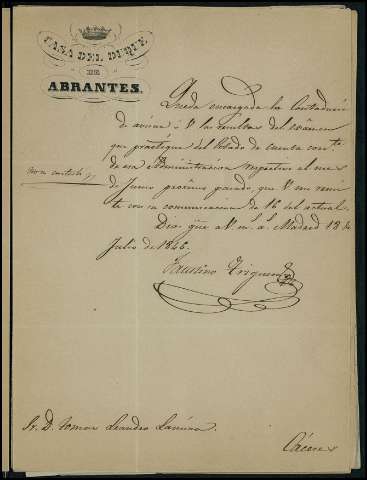 CASA DEL DUQUE
DE
ABRANTES.
Queda encargada la Contaduria
de avisar à V. las resultas del exámen
que practique del Estado de cuenta corr.te
de esa Administracion respectivo al mes
de Junio proximo pasado, que V. me remi
te con su comunicacion de 16 del actual.
Dios gue. a V. m. a. Madrid 18 de
Julio de 1846.
Faustino
Sr. D. Tomas Leandro
Cáceres